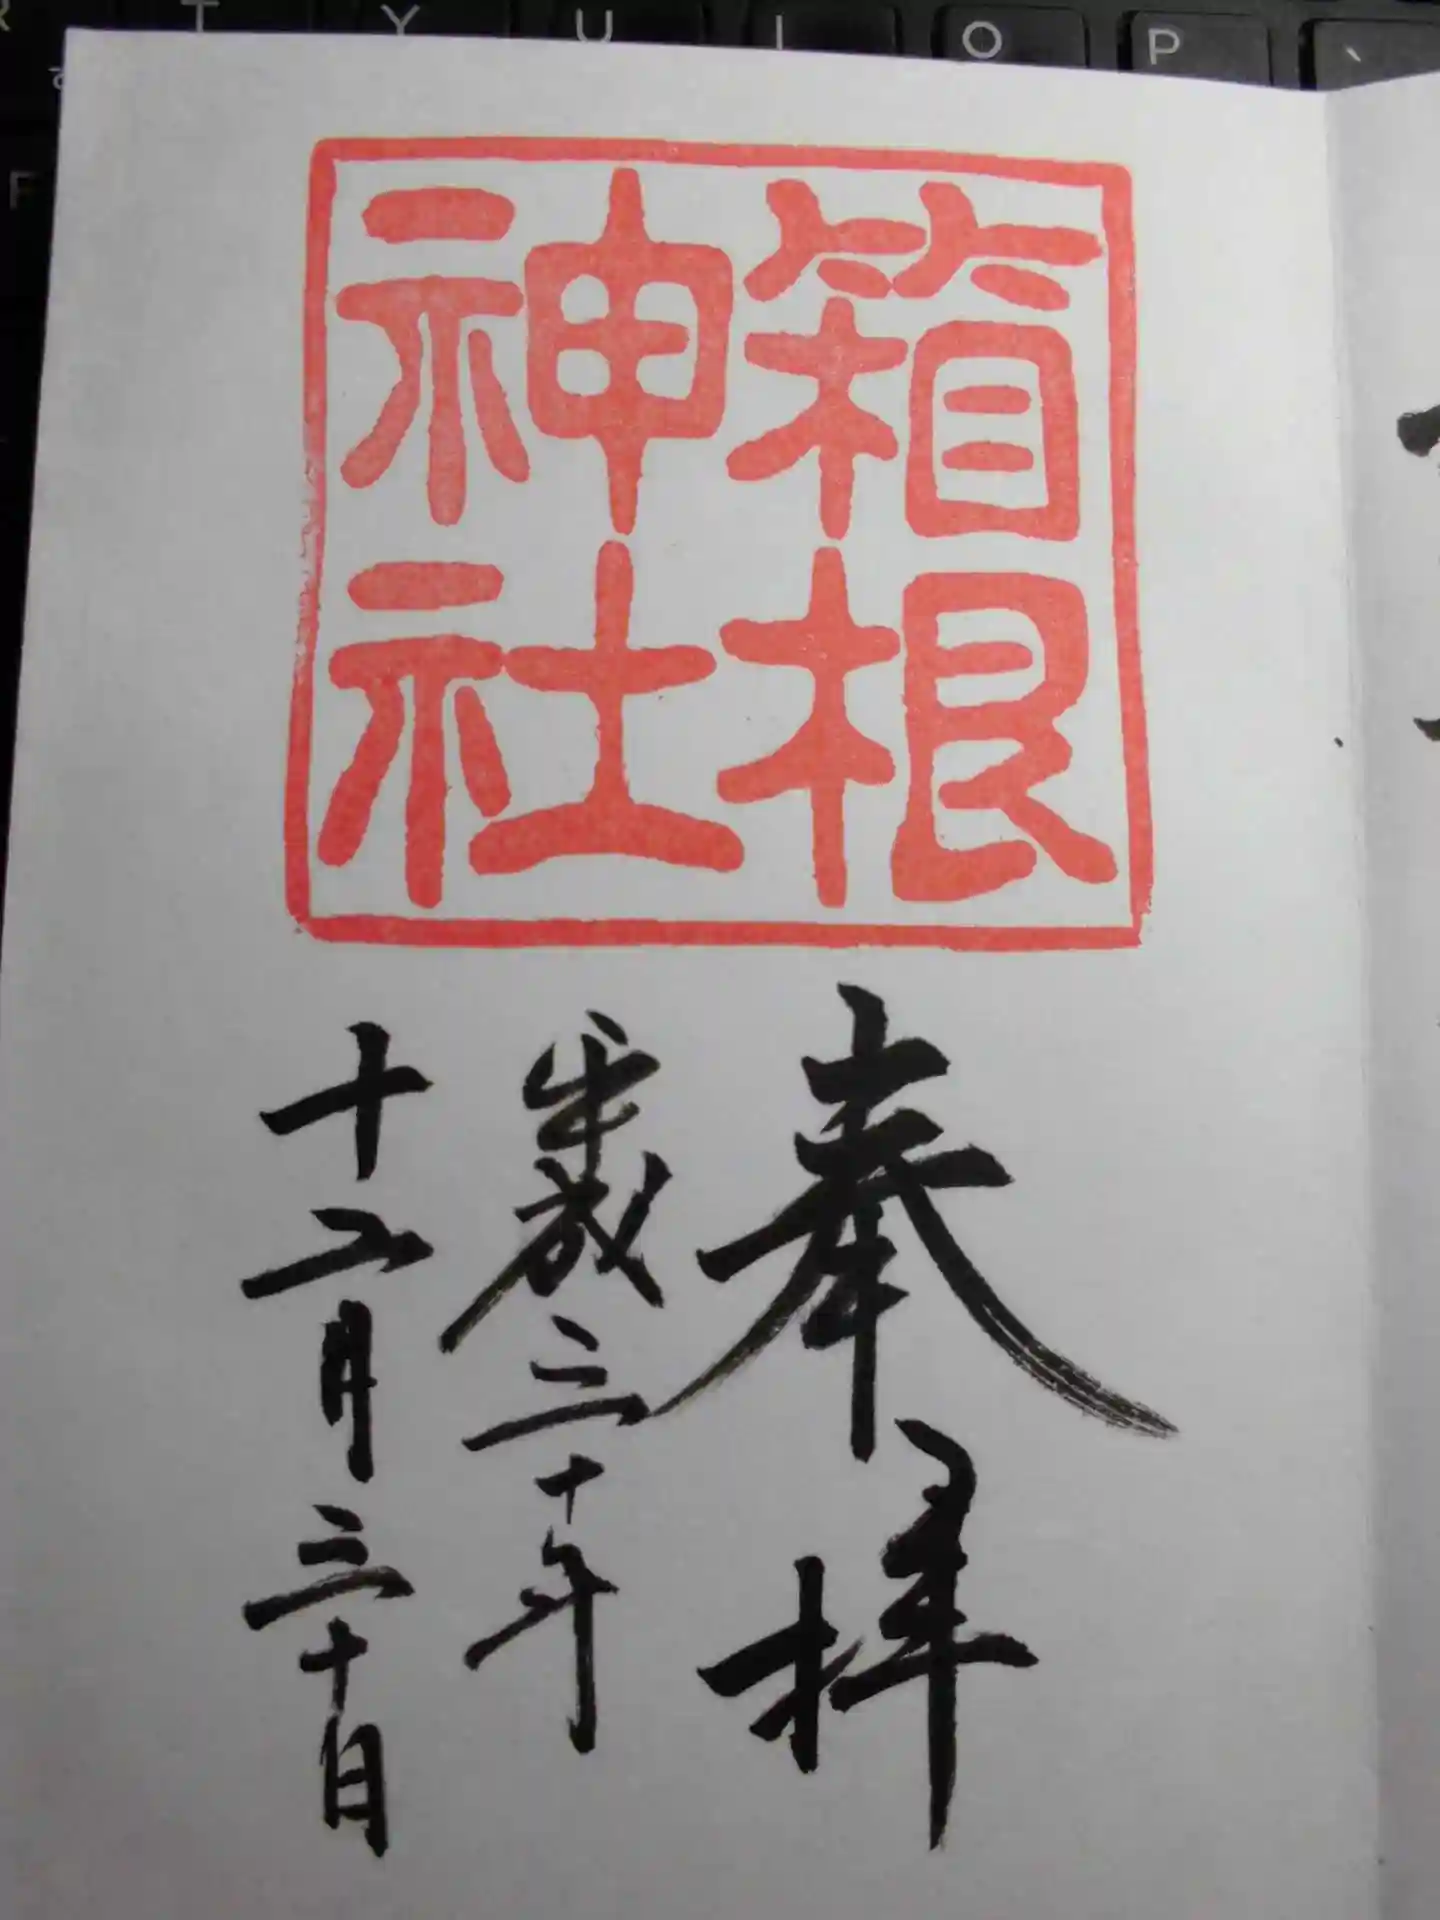 R T Y U I O P
F
箱根
神社
奉拝
歳三十年
十二月三十日